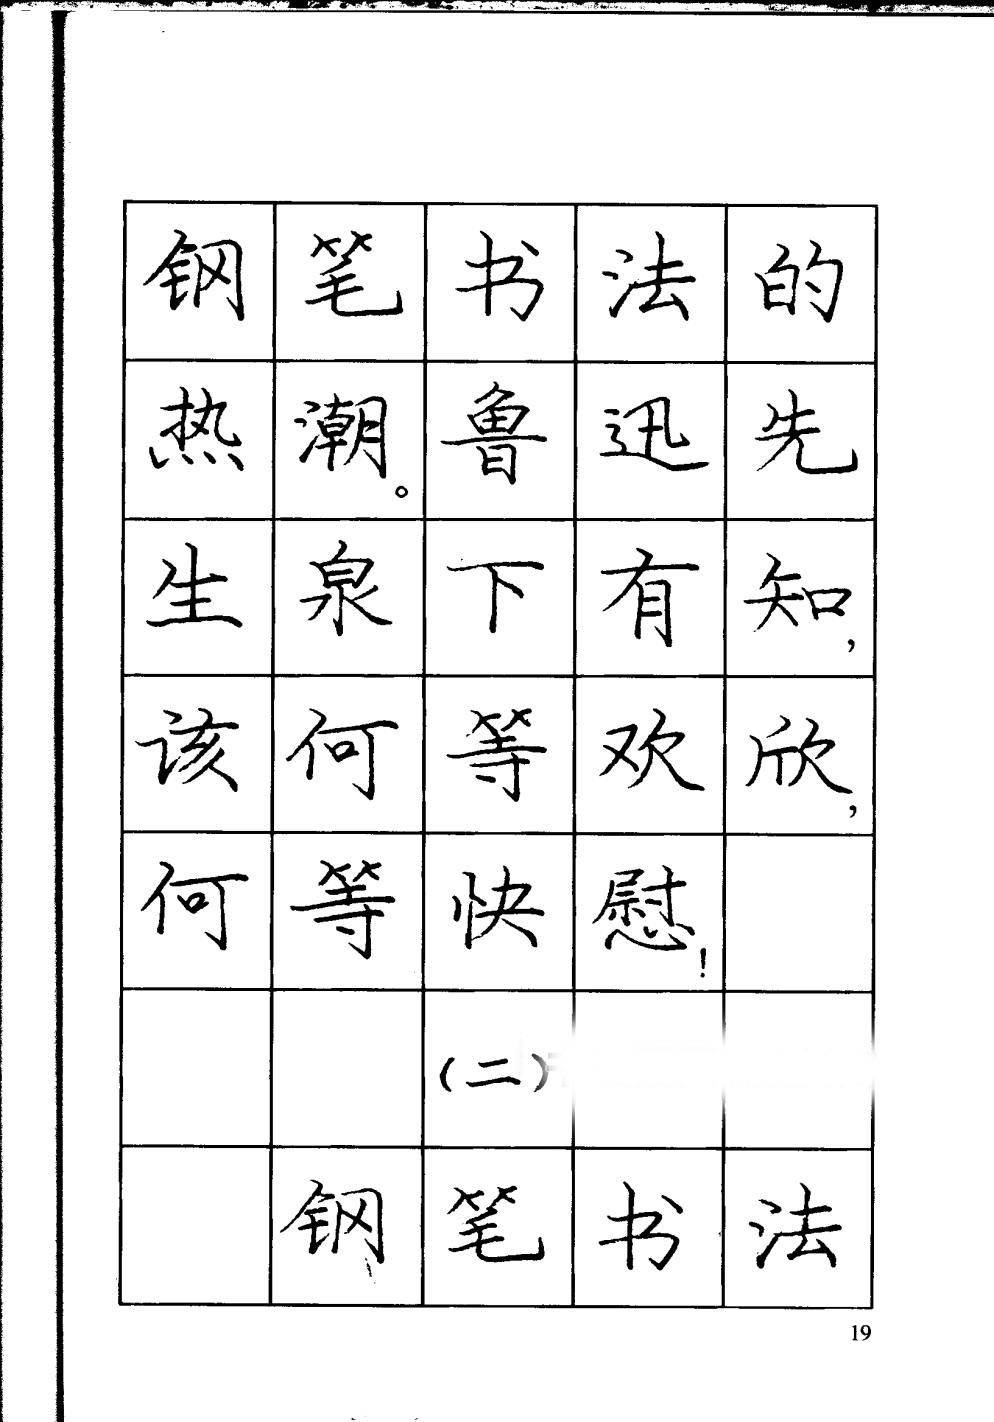 钢笔书法的
热潮。鲁迅先
生泉下有知，
该何等欢欣，
何等快慰！
（二）
钢笔书法
19